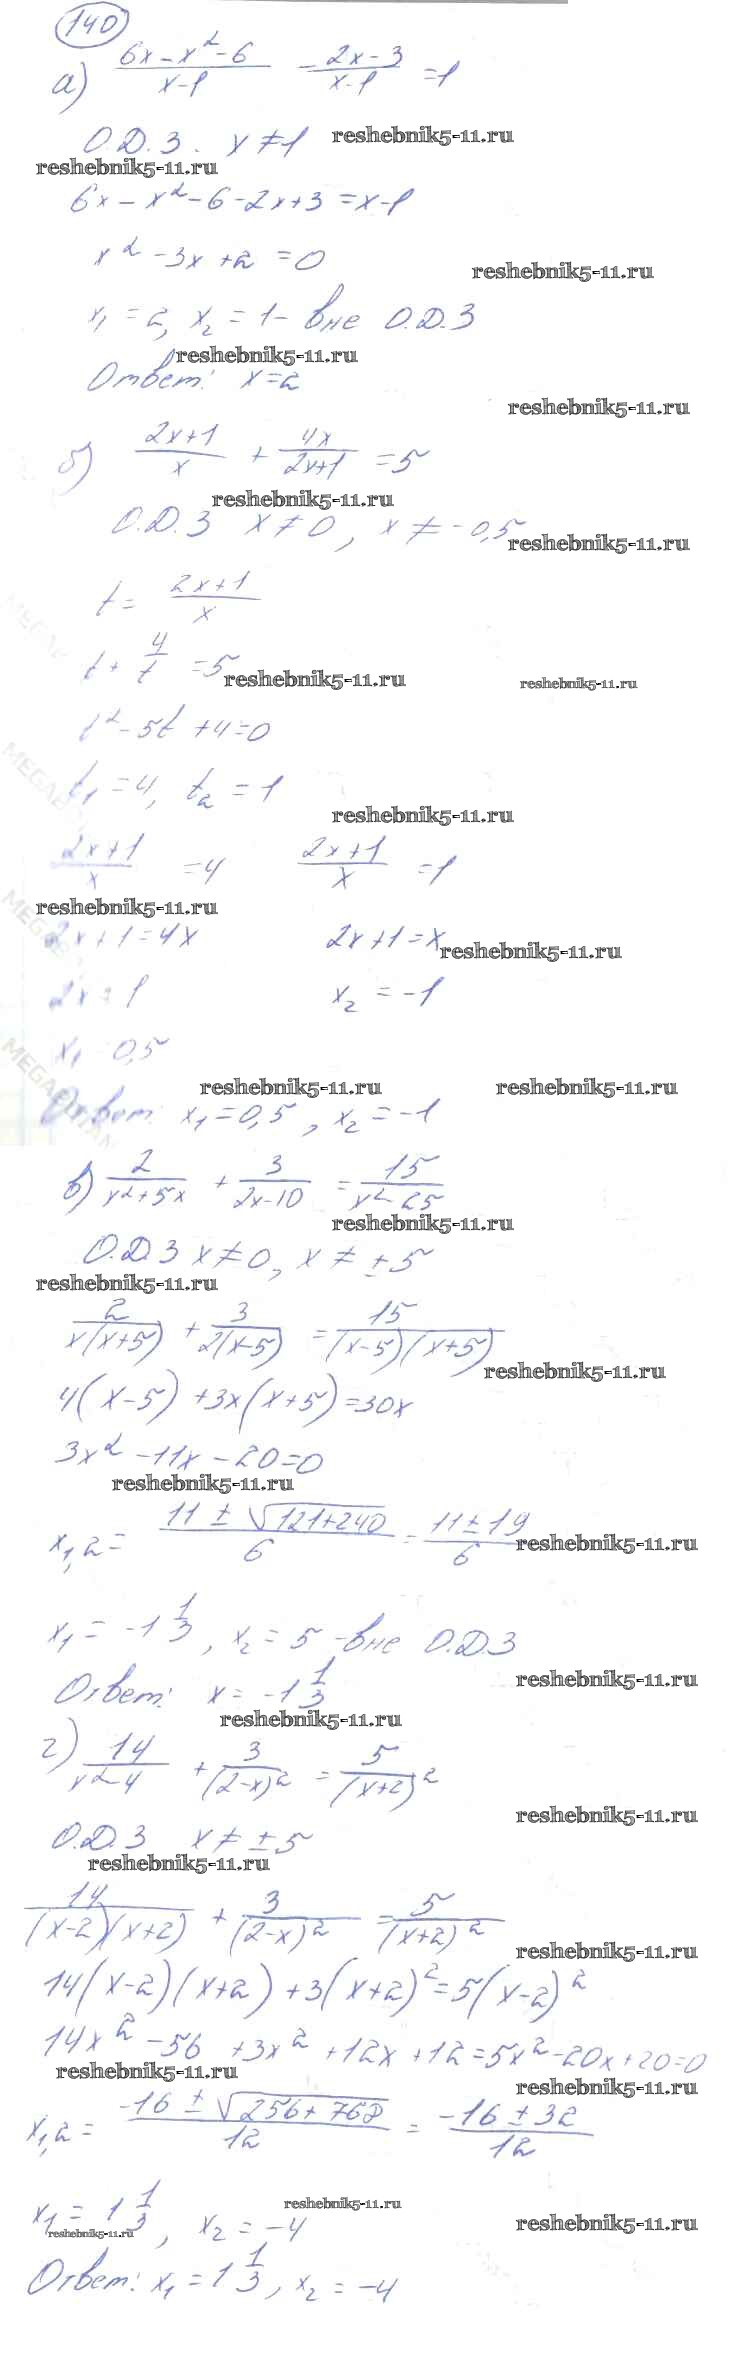 140
а) (6x-x²-6)/(x-1) - (2x-3)/(x-1) = 1
О.Д.З. x≠1 reshebnik5-11.ru
reshebnik5-11.ru
6x-x²-6-2x+3=x-1
x²-3x+2=0 reshebnik5-11.ru
x₁=2, x₂=1- вне О.Д.З
reshebnik5-11.ru
Ответ: x=2
reshebnik5-11.ru
б) (2x+1)/x + 4x/(2x+1) = 5
reshebnik5-11.ru
О.Д.З x≠0, x≠-0,5
reshebnik5-11.ru
t= (2x+1)/x
t+ 4/t =5
reshebnik5-11.ru reshebnik5-11.ru
t²-5t+4=0
t₁=4, t₂=1
reshebnik5-11.ru
(2x+1)/x =4 (2x+1)/x =1
reshebnik5-11.ru
2x+1=4x 2x+1=x
reshebnik5-11.ru
2x=1 x₂=-1
x₁ 0,5
reshebnik5-11.ru reshebnik5-11.ru
Ответ: x₁=0,5, x₂=-1
в) 2/(x²+5x) + 3/(2x-10) = 15/(x²-25)
reshebnik5-11.ru
О.Д.З x≠0, x≠±5
reshebnik5-11.ru
2/(x(x+5)) + 3/(2(x-5)) = 15/((x-5)(x+5))
reshebnik5-11.ru
4(x-5)+3x(x+5)=30x
3x²-11x-20=0
reshebnik5-11.ru
x₁,₂= (11±√(121+240))/6 = (11±19)/6
reshebnik5-11.ru
x₁=-1 1/3, x₂=5 -вне О.Д.З
Ответ: x=-1 1/3
reshebnik5-11.ru
reshebnik5-11.ru
г) 14/(x²-4) + 3/(2-x)² = 5/(x+2)²
reshebnik5-11.ru
О.Д.З x≠±5
reshebnik5-11.ru
14/((x-2)(x+2)) + 3/(2-x)² = 5/(x+2)²
reshebnik5-11.ru
14(x-2)(x+2)+3(x+2)²=5(x-2)²
14x²-56+3x²+12x+12=5x²-20x+20=0
reshebnik5-11.ru
reshebnik5-11.ru
x₁,₂= (-16±√(256+768))/12 = (-16±32)/12
x₁=1 1/3, x₂=-4
reshebnik5-11.ru
reshebnik5-11.ru
reshebnik5-11.ru
Ответ: x₁=1 1/3, x₂=-4